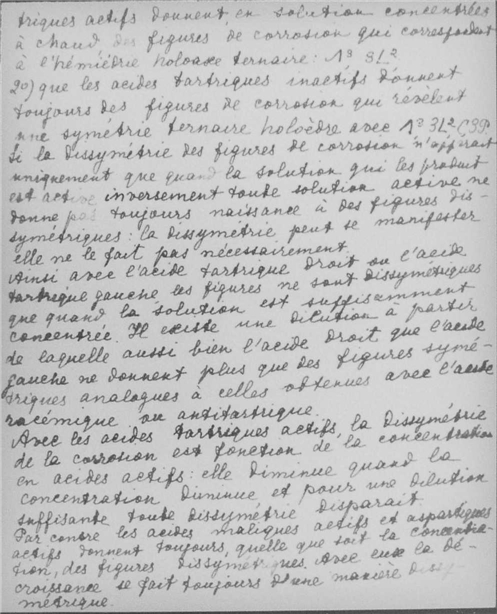 triques actifs donnent en solution concentrées
à chaud des figures de corrosion qui correspondent
à l'hémiédrie holoaxe ternaire: Λ³ 3L²
2º) que les acides tartriques inactifs donnent
toujours des figures de corrosion qui révèlent
une symétrie ternaire holoèdre avec Λ³ 3L² C 3P.
Si la dissymétrie des figures de corrosion n'apparait
uniquement que quand la solution qui les produit
est active inversement toute solution active ne
donne pas toujours naissance à des figures dis-
symétriques: la dissymétrie peut se manifester
elle ne le fait pas nécessairement.
Ainsi avec l'acide tartrique droit ou l'acide
tartrique gauche les figures ne sont dissymétriques
que quand la solution est suffisamment
concentrée. Il existe une dilution à partir
de laquelle aussi bien l'acide droit que l'acide
gauche ne donnent plus que des figures symé-
triques analogues à celles obtenues avec l'acide
racémique ou antitartrique.
Avec les acides tartriques actifs, la dissymétrie
de la corrosion est fonction de la concentration
en acides actifs: elle diminue quand la
concentration diminue et pour une dilution
suffisante toute dissymétrie disparait.
Par contre les acides maliques actifs et aspartiques
actifs donnent toujours, quelle que soit la concentra-
tion, des figures dissymétriques. Avec eux la dé-
croissance se fait toujours d'une manière dissy-
métrique.